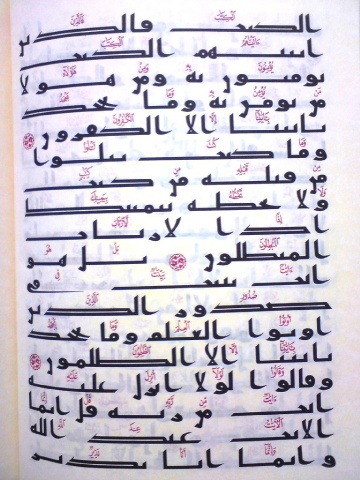 الكتب فالذين
اتينهم الكتب
يومنون به ومن هولا
من يومن به وما يجحد
بايتنا الا الكفرون
وما كنت تتلوا
من قبله من كتب
ولا تخطه بيمينك
اذا لارتاب
المبطلون بل هو
ايت بينت في
صدور الذين
اوتوا العلم وما يجحد
بايتنا الا الظلمون
وقالوا لولا انزل عليه
ايت من ربه قل انما
الايت عند الله
وانما انا نذير